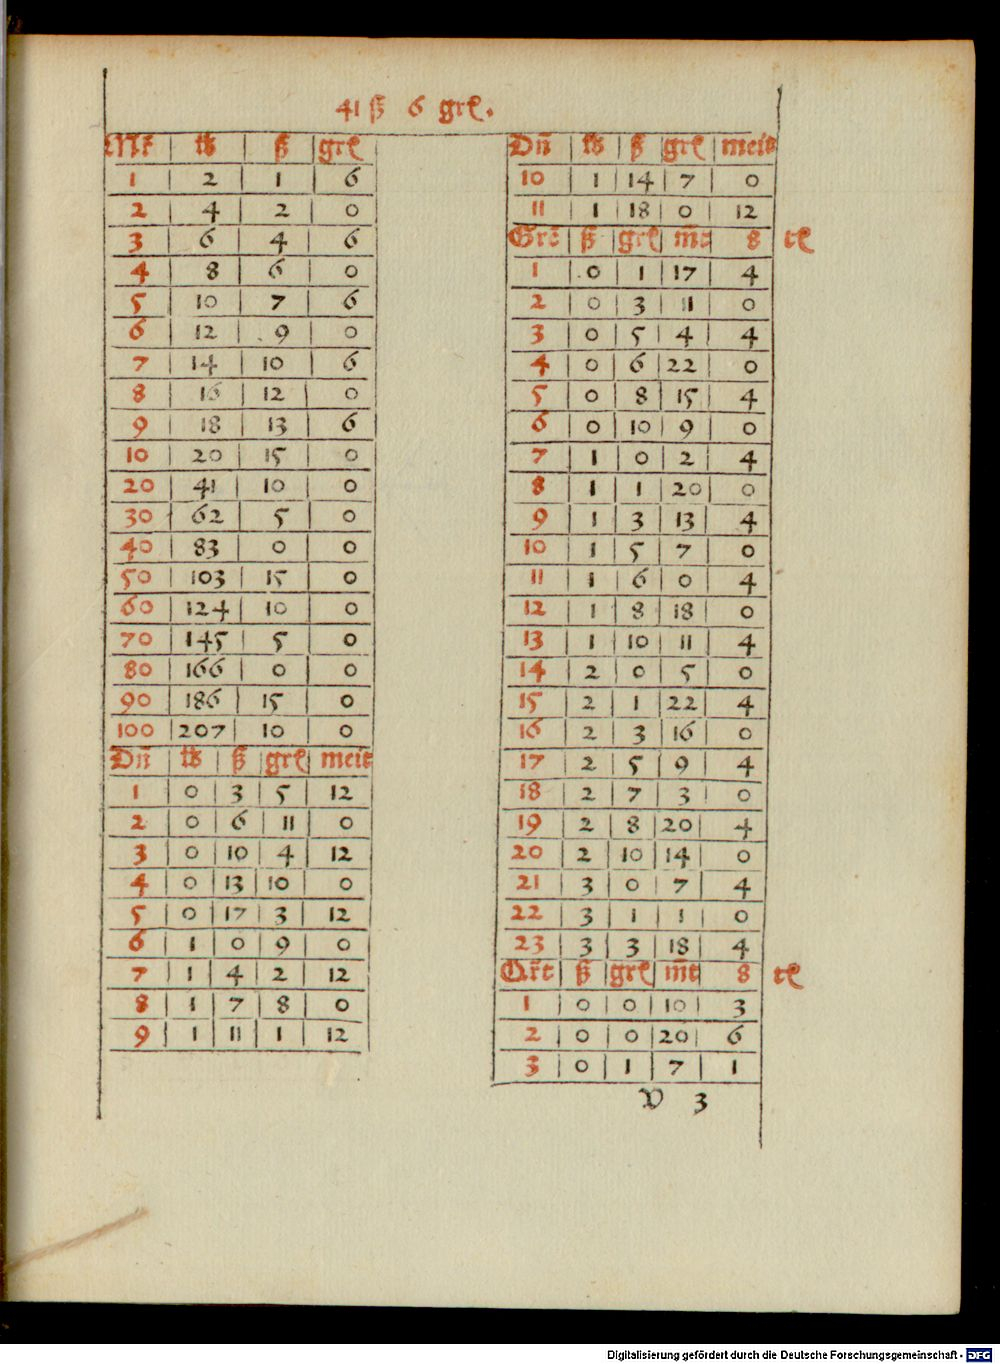 41 ß 6 grl.
Mr̄ | lb | ß | grl
1 | 2 | 1 | 6
2 | 4 | 2 | 0
3 | 6 | 4 | 6
4 | 8 | 6 | 0
5 | 10 | 7 | 6
6 | 12 | 9 | 0
7 | 14 | 10 | 6
8 | 16 | 12 | 0
9 | 18 | 13 | 6
10 | 20 | 15 | 0
20 | 41 | 10 | 0
30 | 62 | 5 | 0
40 | 83 | 0 | 0
50 | 103 | 15 | 0
60 | 124 | 10 | 0
70 | 145 | 5 | 0
80 | 166 | 0 | 0
90 | 186 | 15 | 0
100 | 207 | 10 | 0
Dn̄ | lb | ß | grl | meit
1 | 0 | 3 | 5 | 12
2 | 0 | 6 | 11 | 0
3 | 0 | 10 | 4 | 12
4 | 0 | 13 | 10 | 0
5 | 0 | 17 | 3 | 12
6 | 1 | 0 | 9 | 0
7 | 1 | 4 | 2 | 12
8 | 1 | 7 | 8 | 0
9 | 1 | 11 | 1 | 12
Dn̄ | lb | ß | grl | meit
10 | 1 | 14 | 7 | 0
11 | 1 | 18 | 0 | 12
Gre̅ | ß | grl | m̄t | 8 tl
1 | 0 | 1 | 17 | 4
2 | 0 | 3 | 11 | 0
3 | 0 | 5 | 4 | 4
4 | 0 | 6 | 22 | 0
5 | 0 | 8 | 15 | 4
6 | 0 | 10 | 9 | 0
7 | 1 | 0 | 2 | 4
8 | 1 | 1 | 20 | 0
9 | 1 | 3 | 13 | 4
10 | 1 | 5 | 7 | 0
11 | 1 | 6 | 0 | 4
12 | 1 | 8 | 18 | 0
13 | 1 | 10 | 11 | 4
14 | 2 | 0 | 5 | 0
15 | 2 | 1 | 22 | 4
16 | 2 | 3 | 16 | 0
17 | 2 | 5 | 9 | 4
18 | 2 | 7 | 3 | 0
19 | 2 | 8 | 20 | 4
20 | 2 | 10 | 14 | 0
21 | 3 | 0 | 7 | 4
22 | 3 | 1 | 1 | 0
23 | 3 | 3 | 18 | 4
Qr̄t | ß | grl | m̄t | 8 tl
1 | 0 | 0 | 10 | 3
2 | 0 | 0 | 20 | 6
3 | 0 | 1 | 7 | 1
v 3
Digitalisierung gefördert durch die Deutsche Forschungsgemeinschaft - DFG